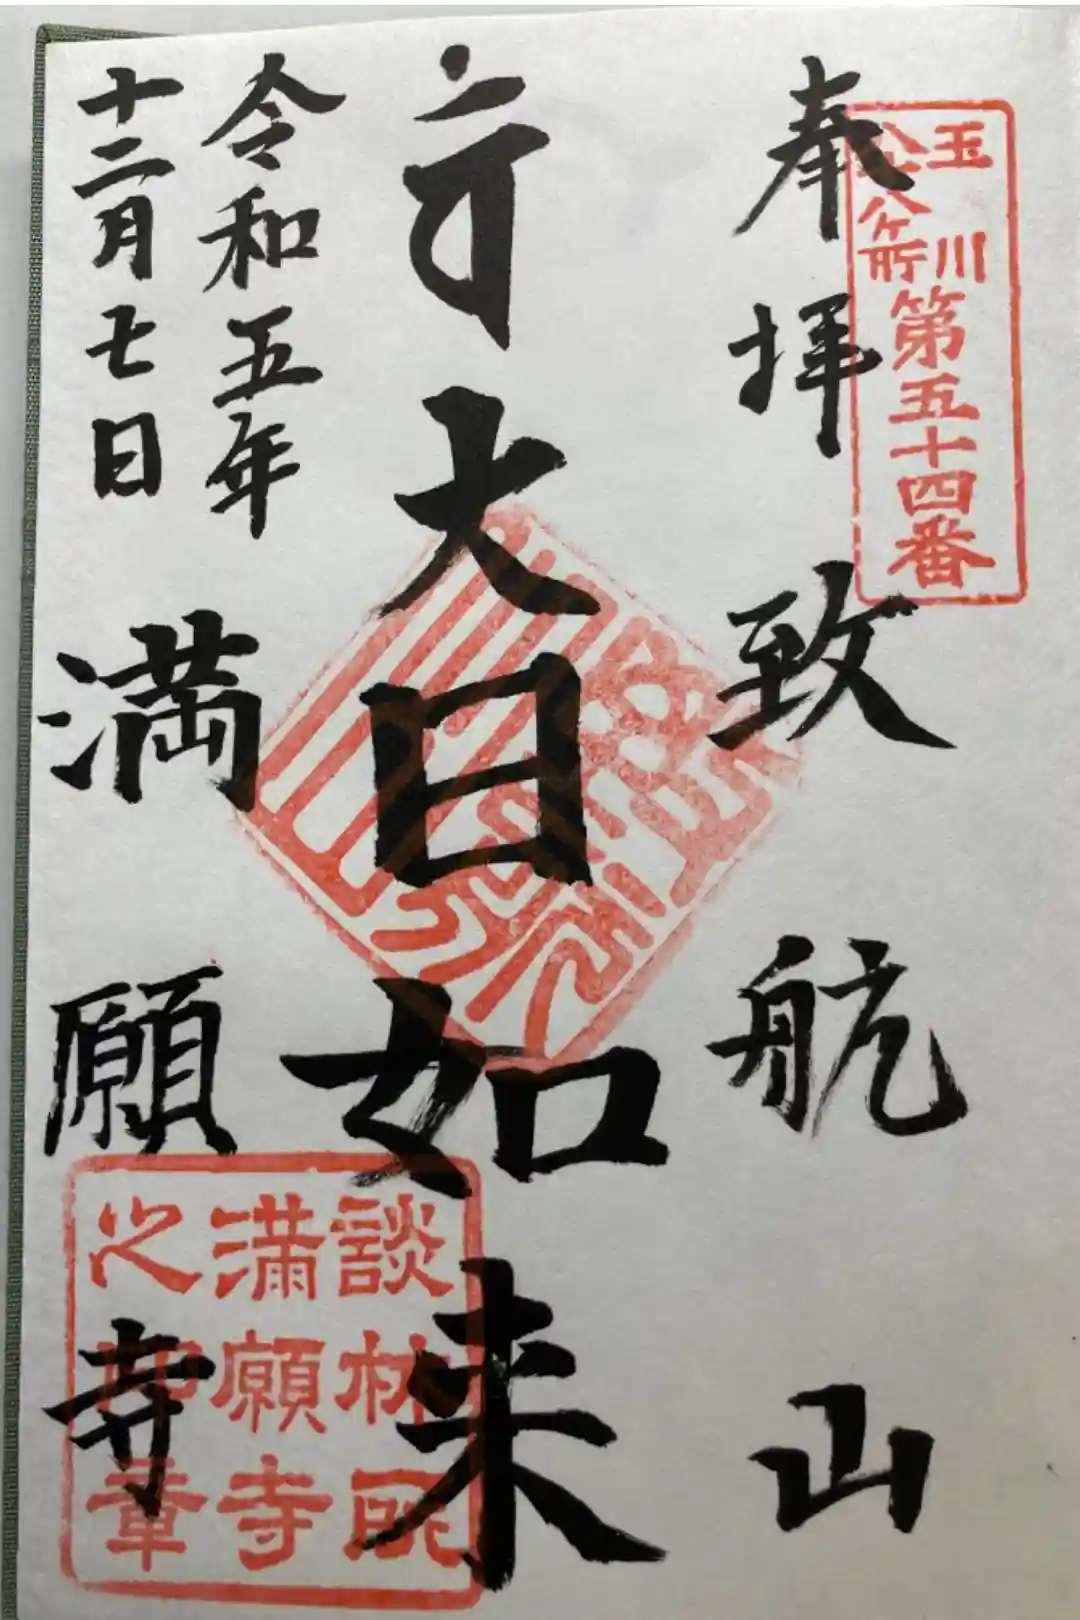 奉拝 致航山
玉川
八ヶ所
第五十四番
大日如来
令和五年
十二月七日
満願寺
談林所
満願寺
之印章